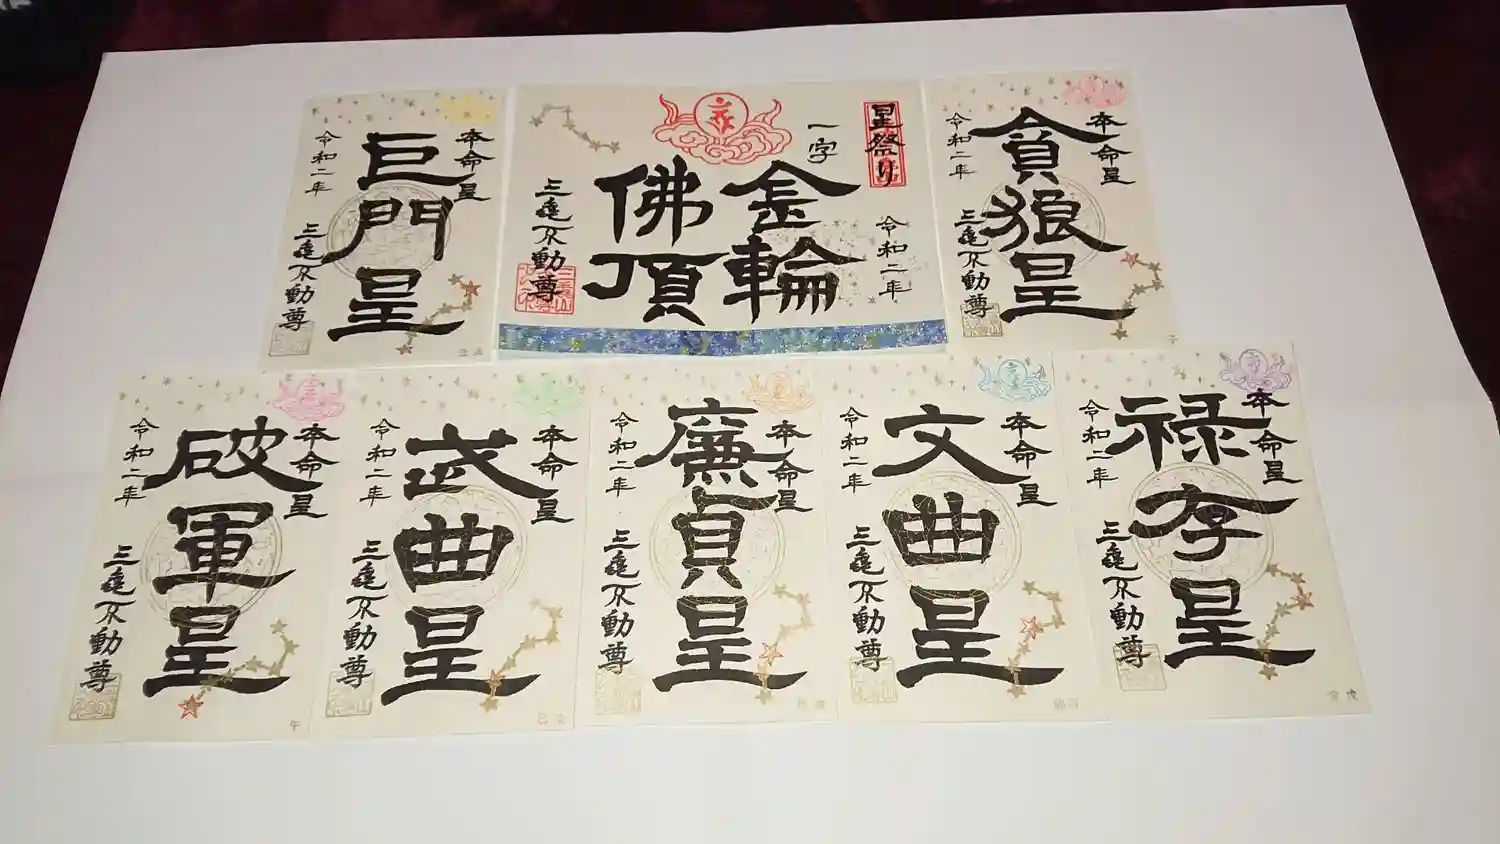 本命星
巨門星
令和二年
三亀不動尊
星祭り
令和二年
一字
金輪
佛頂
三亀不動尊
本命星
貪狼星
令和二年
三亀不動尊
子
本命星
破軍星
令和二年
三亀不動尊
午
本命星
武曲星
令和二年
三亀不動尊
本命星
廉貞星
令和二年
三亀不動尊
本命星
文曲星
令和二年
三亀不動尊
本命星
禄存星
令和二年
三亀不動尊